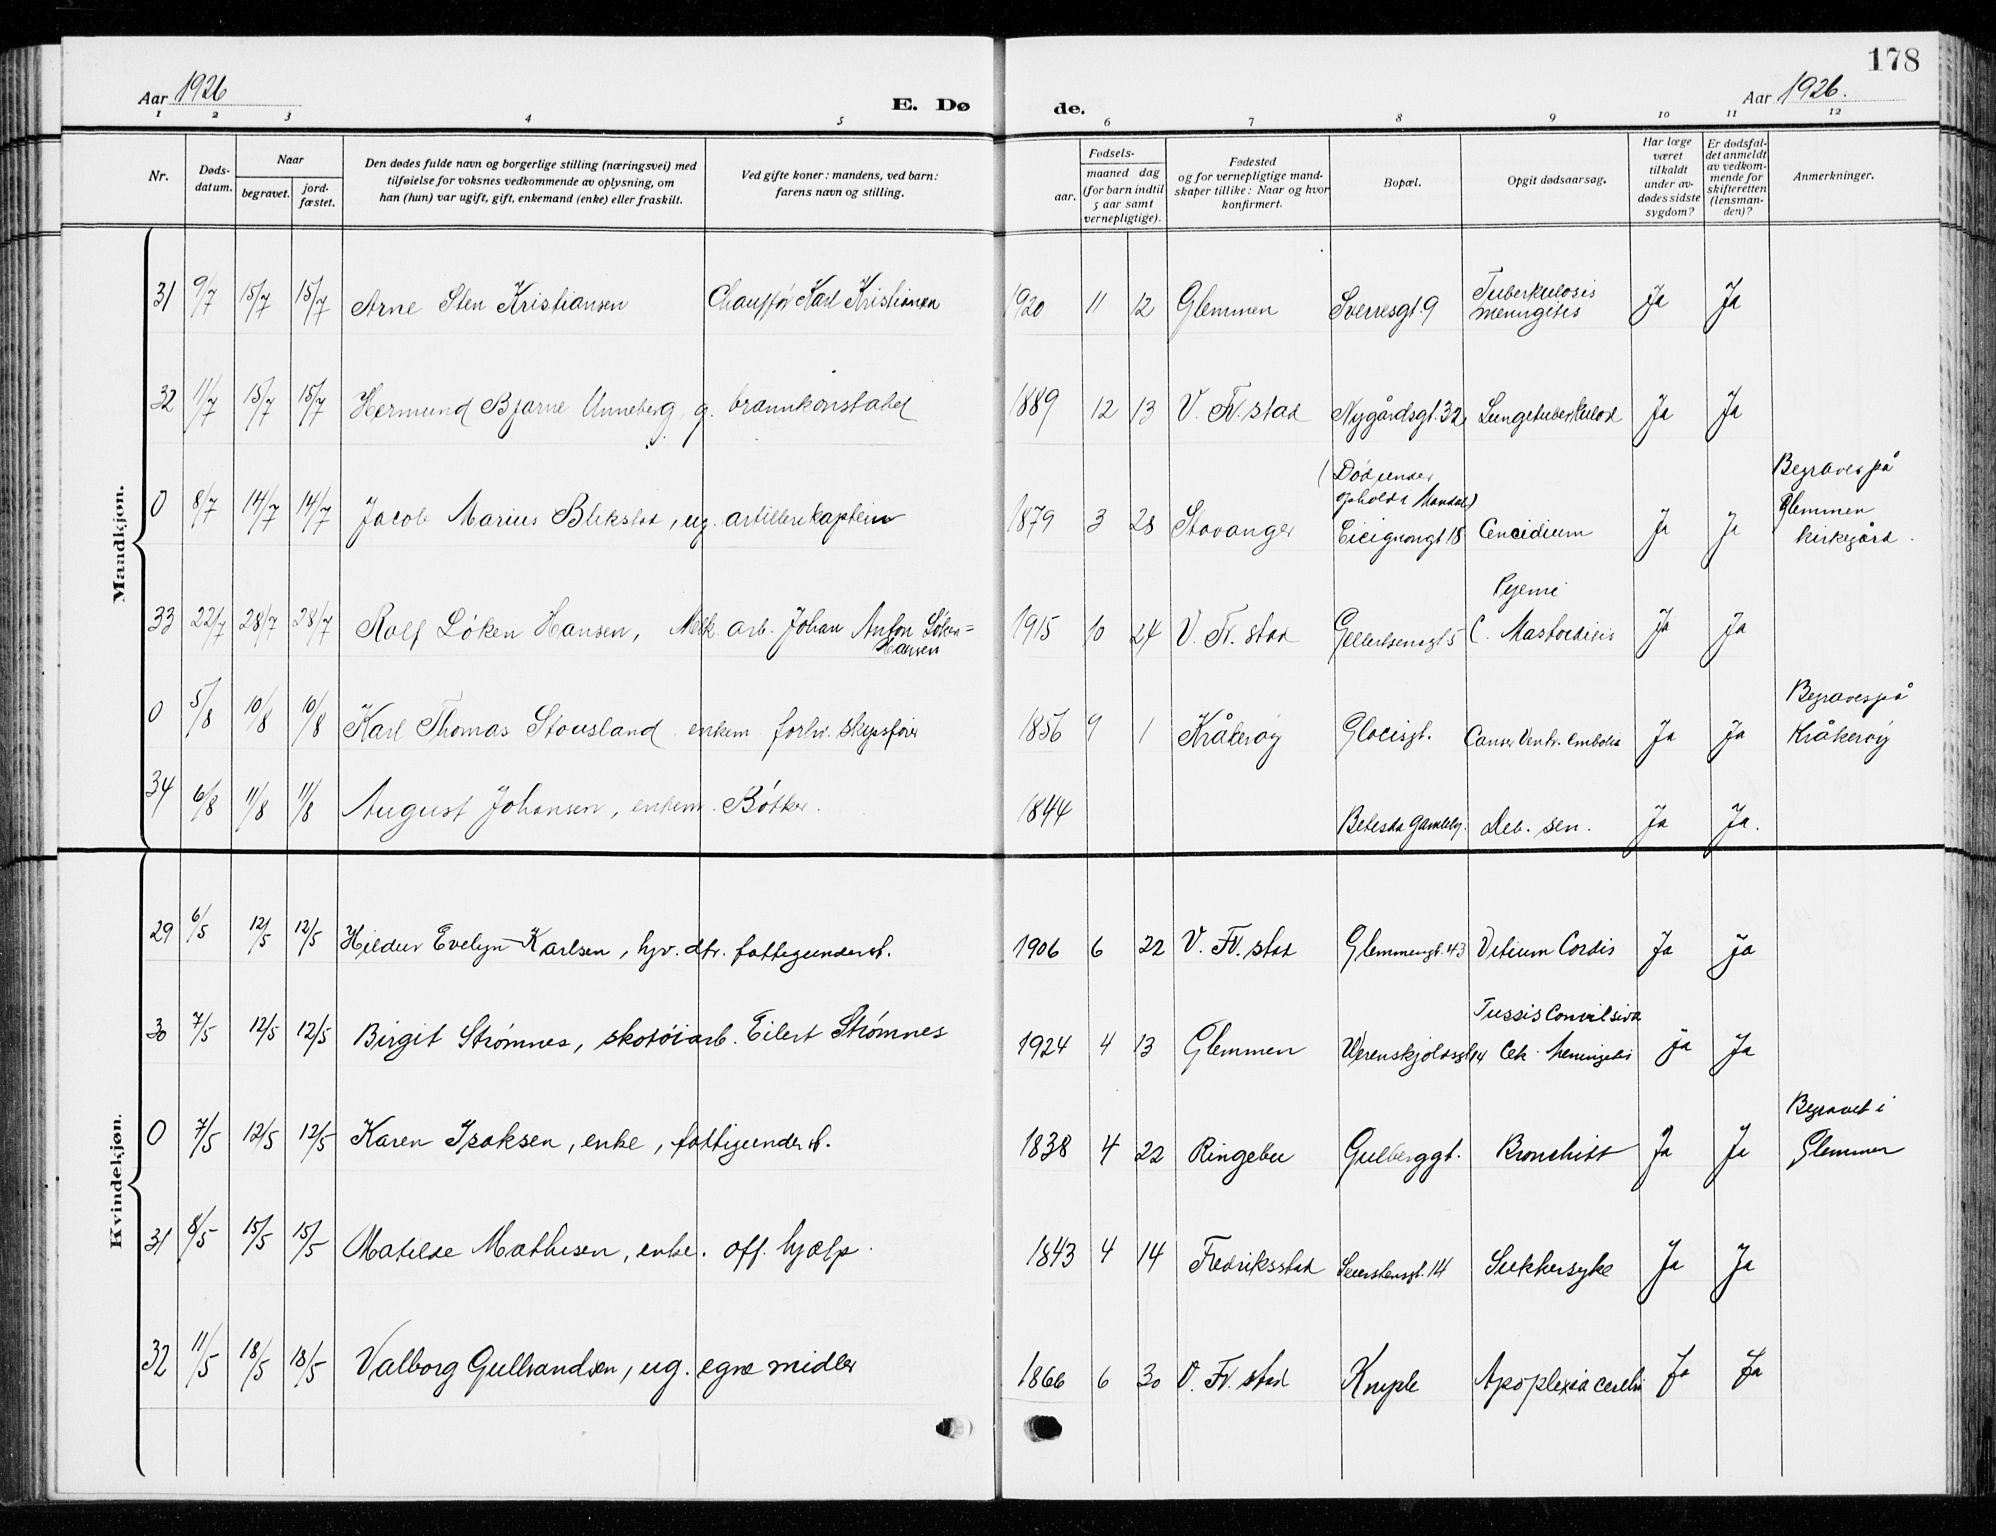 178
Aar 1926
E. Dø
de.
Aar 1926.
1 2 3 4 5 6 7 8 9 10 11 12
Nr.
Døds-
datum.
Naar
begravet.
jord-
fæstet.
Den dødes fulde navn og borgerlige stilling (næringsvei) med
tilføielse for voksnes vedkommende av oplysning, om
han (hun) var ugift, gift, enkemand (enke) eller fraskilt.
Ved gifte koner: mandens, ved barn:
farens navn og stilling.
Fødsels-
aar.
maaned dag
(for barn indtil
5 aar samt
vernepligtige).
Fødested
og for vernepligtige mand-
skaper tillike: Naar og hvor
konfirmert.
Bopæl.
Opgit dødsaarsag.
Har læge
været
tilkaldt
under av-
dødes sidste
sygdom?
Er dødsfal-
det anmeldt
av vedkom-
mende for
skifteretten
(lensman-
den)?
Anmerkninger.
Mandkjøn.
31 9/7 15/7 15/7 Arne Sten Kristiansen Chauffør Karl Kristiansen 1920 11 12 Glemmen Sverresgt. 9 Tuberkulosis
meningitis Ja Ja
32 11/7 15/7 15/7 Hermund Bjarne Unneberg, g. brannkonstabel 1889 12 13 V. Fr. stad Nygårdsgt. 32 Lungetuberkulose Ja Ja
0 8/7 14/7 14/7 Jacob Marius Blikstad, ug. artillerikaptein 1879 3 28 Stavanger (Død under
ophold i Mandal)
Cicignongt 18 Ja Ja Begraves på
Glemmen
kirkegård.
33 22/7 28/7 28/7 Rolf Løken Hansen, Mek. arb. Johan Anton Løken=
Hansen 1915 10 24 V. Fr. stad Gellertsensgt 5 Pyemi
C. Mastoiditis Ja Ja
0 5/8 10/8 10/8 Karl Thomas Stousland enkem. forhv. skipsfører 1856 9 1 Kråkerøy Glocisgt. Cancer Ventr. Emboli Ja Ja Begraves på
Kråkerøy
34 6/8 11/8 11/8 August Johansen, enkem. Bøtker. 1844 Betesda Gamleby. Deb. sen. Ja Ja.
Kvindekjøn.
29 6/5 12/5 12/5 Hildur Evelyn Karlsen, hjv. dtr. fattigunderst. 1906 6 22 V. Fr. stad Glemmengt. 43 Vitium Cordis Ja Ja
30 7/5 12/5 12/5 Birgit Strømnes, skotøiarb. Eilert Strømnes 1924 4 13 Glemmen Werenskjoldsgt 14 Tussis Convulsiva
Meningitis Ja Ja
0 7/5 12/5 12/5 Karen Isaksen, enke, fattigunderst. 1838 4 22 Ringebu Gulberggt. Bronchitt Ja Ja Begravet i
Glemmen
31 8/5 15/5 15/5 Matilde Mathisen, enke. off. hjælp. 1843 4 14 Fredriksstad Seierstensgt. 14 Sukkersyke Ja Ja
32 11/5 18/5 18/5 Valborg Gulbrandsen, ug. egne midler 1866 6 30 V. Fr. stad Kniple Apoplexia cerebri Ja Ja